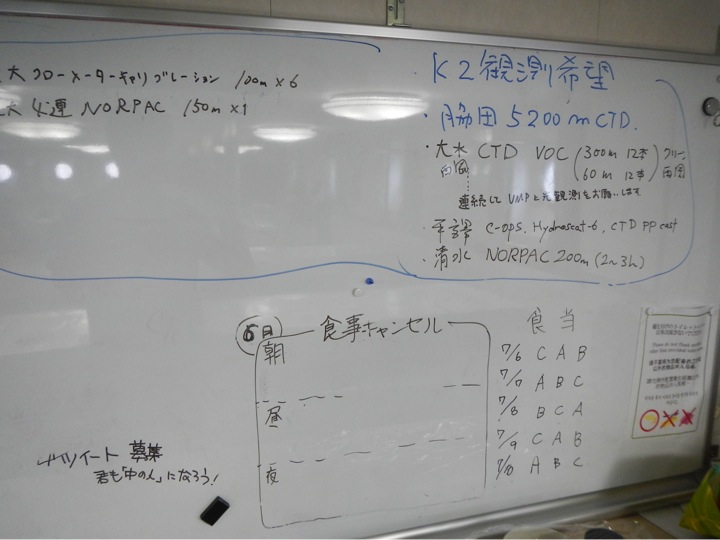 大 フローメーターキャリブレーション 100m×6
大 4連 NORPAC 150m×1
K2観測希望
・脇田 5200mCTD.
・大木 CTD VOC (300m 12本 60m 12本) クリーン
西岡 西岡
連続して VMPと光観測をお願いします
・平譯 C-OPS, Hydroscat-6, CTD PP cast
・清水 NORPAC 200m (2~3h)
6日 食事キャンセル
朝
昼
夜
食当
7/6 C A B
7/7 A B C
7/8 B C A
7/9 C A B
7/10 A B C
ツイート 募集
君も「中の人」になろう!